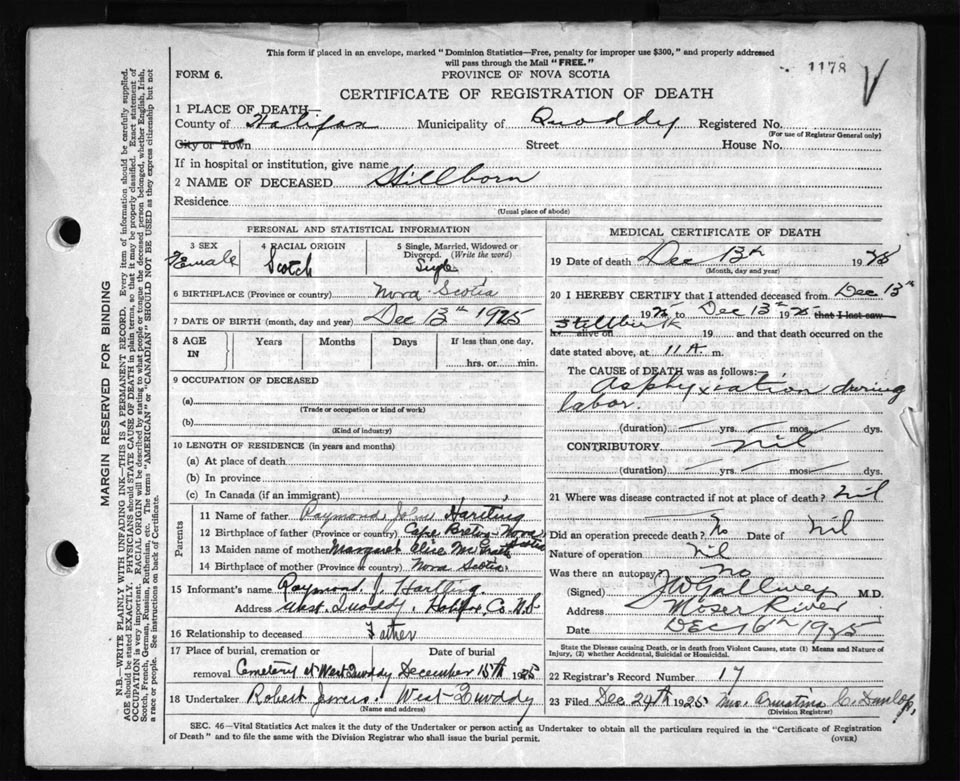 This form if placed in an envelope, marked "Dominion Statistics—Free, penalty for improper use $300," and properly addressed
will pass through the Mail "FREE."
FORM 6.
PROVINCE OF NOVA SCOTIA
1178
CERTIFICATE OF REGISTRATION OF DEATH
1 PLACE OF DEATH—
County of Halifax Municipality of Quoddy Registered No.
(For use of Registrar General only)
City or Town Street House No.
If in hospital or institution, give name
2 NAME OF DECEASED Stillborn
Residence
(Usual place of abode)
PERSONAL AND STATISTICAL INFORMATION
3 SEX 4 RACIAL ORIGIN 5 Single, Married, Widowed or
Divorced. (Write the word)
Female Scotch Single
6 BIRTHPLACE (Province or country) Nova Scotia
7 DATE OF BIRTH (month, day and year) Dec 13th 1925
8 AGE IN Years Months Days If less than one day.
hrs. or min.
9 OCCUPATION OF DECEASED
(a)
(Trade or occupation or kind of work)
(b)
(Kind of industry)
10 LENGTH OF RESIDENCE (in years and months)
(a) At place of death
(b) In province
(c) In Canada (if an immigrant)
Parents
11 Name of father Raymond John Hartling
12 Birthplace of father (Province or country) Cape Breton Nova Scotia
13 Maiden name of mother Margaret Alice
14 Birthplace of mother (Province or country) Nova Scotia
15 Informant's name Raymond J. Hartling
Address West Quoddy, Halifax Co. N.S
16 Relationship to deceased Father
17 Place of burial, cremation or Date of burial
removal Cemetery at West Quoddy December 15th 1925
18 Undertaker Robert West Quoddy
(Name and address)
MEDICAL CERTIFICATE OF DEATH
19 Date of death Dec 13th 1925
(Month, day and year)
20 I HEREBY CERTIFY that I attended deceased from Dec 13th
1925 to Dec 13th 1925 that I last saw
stillbirth alive on 19 and that death occurred on the
date stated above, at 11 A m.
The CAUSE of DEATH was as follows:
Asphyxiation during
labor.
(duration) yrs. mos. dys.
CONTRIBUTORY nil
(duration) yrs. mos. dys.
21 Where was disease contracted if not at place of death? nil
Did an operation precede death? No Date of nil
Nature of operation nil
Was there an autopsy? no
(Signed) M.D.
Address Moser River
Date Dec 16th 1925
State the Disease causing Death, or in death from Violent Causes, state (1) Means and Nature of
Injury, (2) whether Accidental, Suicidal or Homicidal.
22 Registrar's Record Number 17
23 Filed Dec 24th 1925 Mrs. C. Dunlop,
(Division Registrar)
SEC. 46—Vital Statistics Act makes it the duty of the Undertaker or person acting as Undertaker to obtain all the particulars required in the "Certificate of Registration
of Death" and to file the same with the Division Registrar who shall issue the burial permit.
(OVER)
MARGIN RESERVED FOR BINDING
N.B.—WRITE PLAINLY WITH UNFADING INK—THIS IS A PERMANENT RECORD. Every item of information should be carefully supplied.
AGE should be stated EXACTLY. PHYSICIANS should STATE CAUSE OF DEATH in plain terms, so that it may be properly classified. Exact statement of
OCCUPATION is very important. RACIAL ORIGIN will be described by stating to what people or tongue the deceased person belonged, whether English, Irish,
Scotch, French, German, Russian, Ruthenian, etc. The terms "AMERICAN" or "CANADIAN" SHOULD NOT BE USED as they express citizenship but not
a race or people. See instructions on back of Certificate.